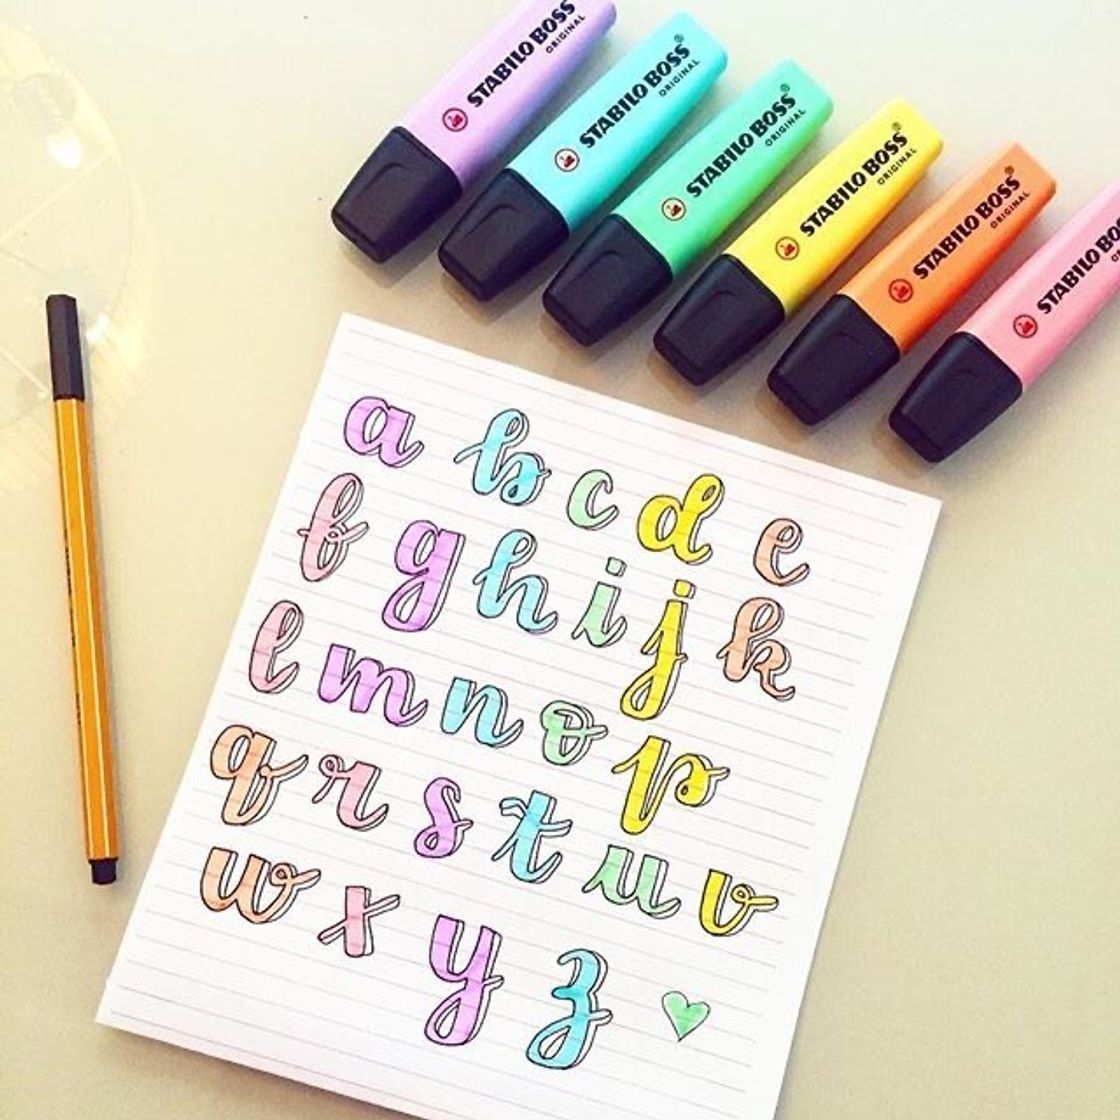 STABILO BOSS ORIGINAL
STABILO BOSS® ORIGINAL
STABILO BOSS® ORIGINAL
STABILO BOSS® ORIGINAL
STABILO BOSS® ORIGINAL
STABILO BOSS
a b c d e
f g h i j k
l m n o p
q r s t u v
w x y z